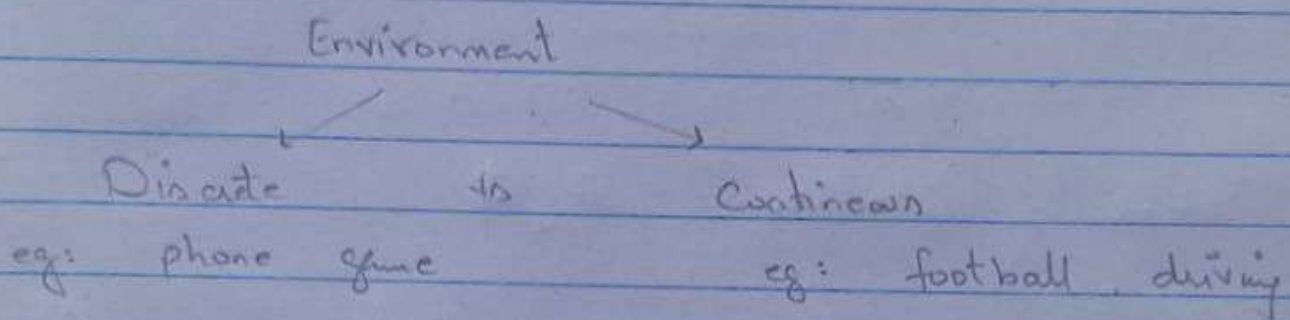 Environment
Discrete vs Continuous
eg: phone game eg: football, driving